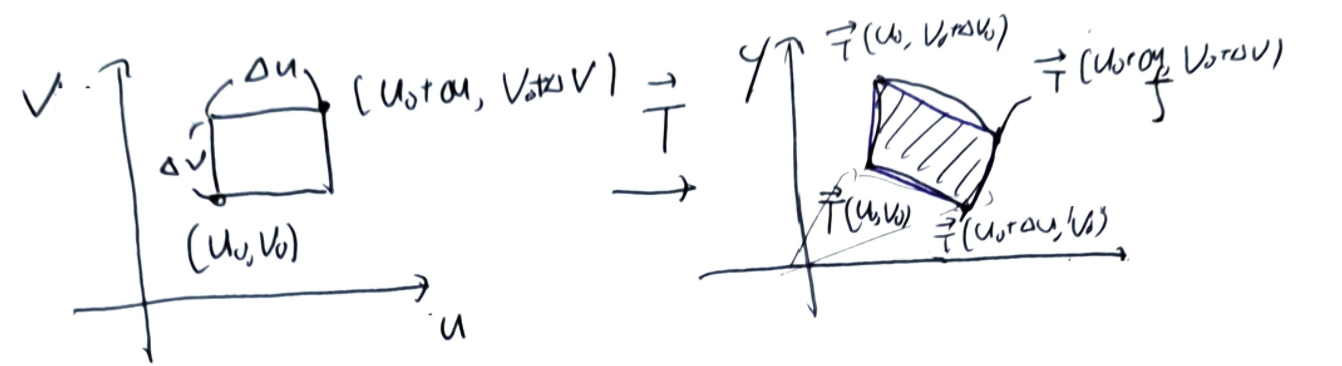 V
Δu
(u₀+Δu, V₀+ΔV)
ΔV
(u₀,V₀)
u
T⃗
→
y
T⃗(u₀, V₀+ΔV₀)
T⃗(u₀+Δu, V₀+ΔV)
T⃗(u₀,V₀)
T⃗(u₀+Δu, V₀)